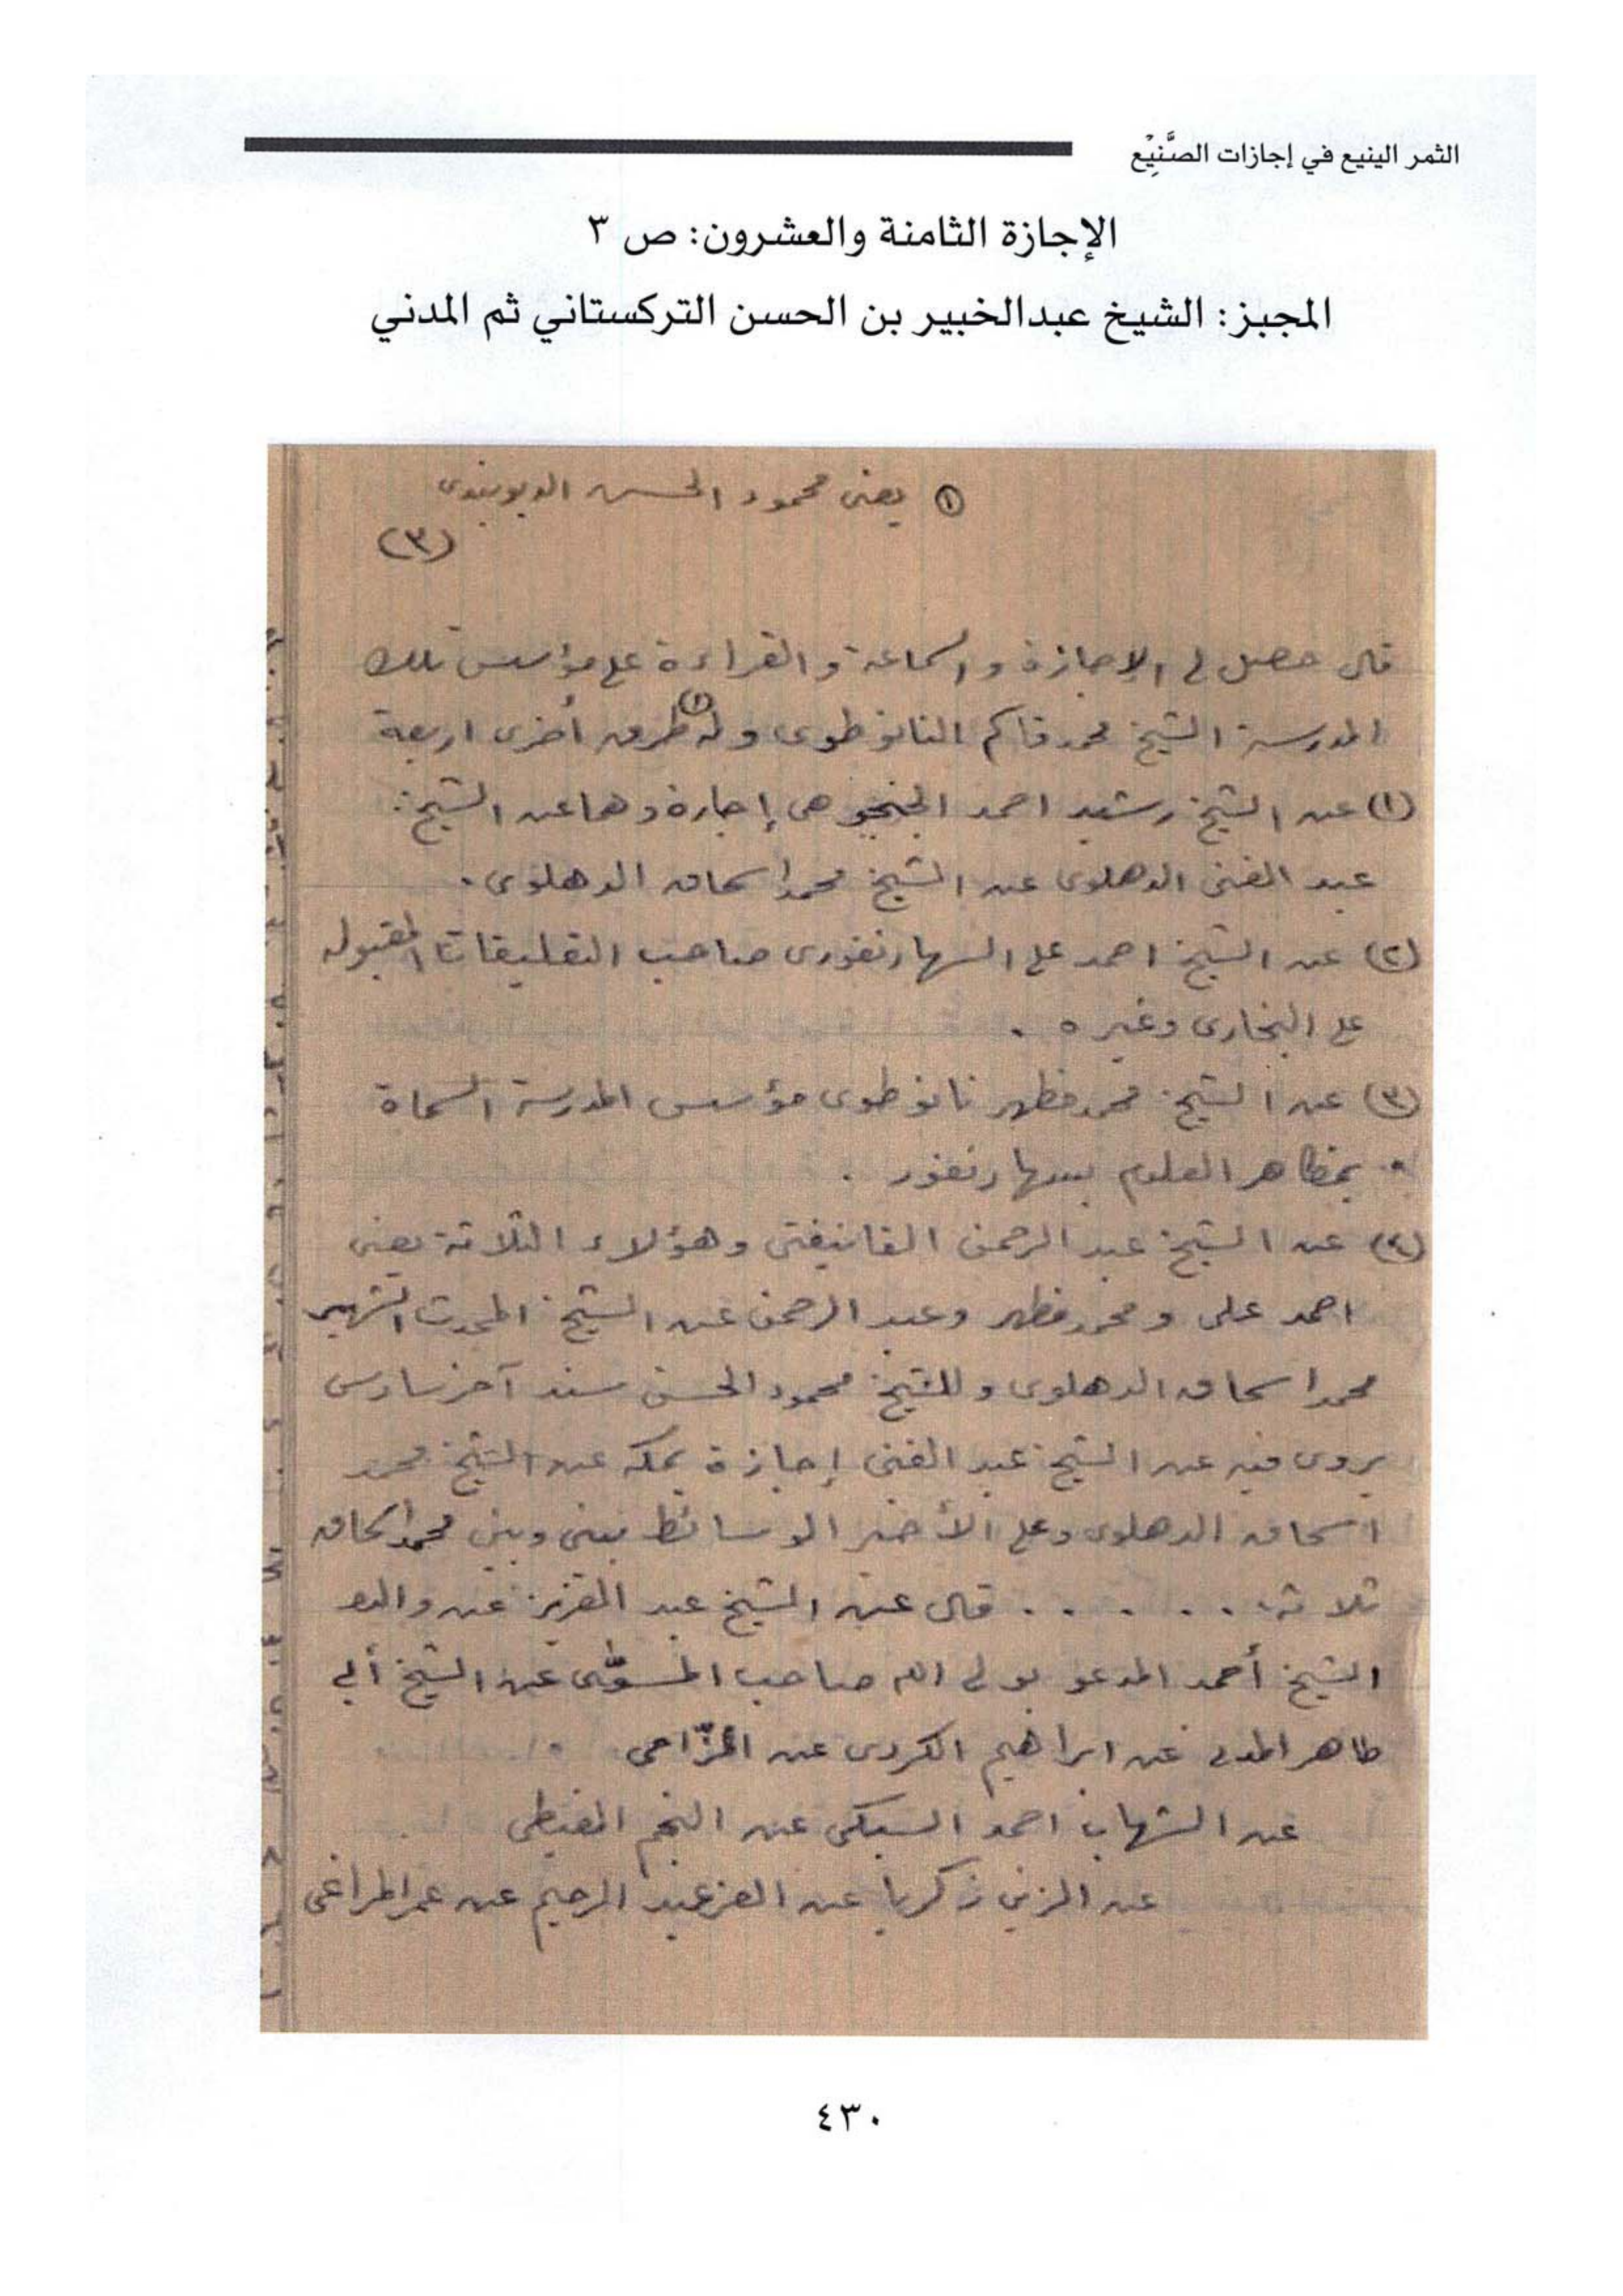 الثمر الينيع في إجازات الصَّنِيْع
الإجازة الثامنة والعشرون: ص ٣
المجبز: الشيخ عبدالخبير بن الحسن التركستاني ثم المدني
(١) يعنى محمود الحسن الديوبندى
(٣)
قال حصل لى الإجازة والسماعة والقراءة على مؤسس تلك
المدرسة الشيخ محمد قاسم النانوطوى وله (١) طرق أخرى اربعة
(١) عن الشيخ رشيد احمد الجنجوهى إجازة وهما عن الشيخ
عبد الغنى الدهلوى عن الشيخ محمد اسحاق الدهلوى .
(٢) عن الشيخ احمد على السهارنفورى صاحب التعليقات المقبولة
على البخارى وغيره .
(٣) عن الشيخ محمد مظهر نانوطوى مؤسس المدرسة المسماة
بمظاهر العلوم بسهارنفور .
(٤) عن الشيخ عبد الرحمن الفانيفتى وهؤلاء الثلاثة يعنى
احمد على ومحمد مظهر وعبد الرحمن عن الشيخ المحدث الشهير
محمد اسحاق الدهلوى وللشيخ محمود الحسن سند آخر سادس
يروى فيه عن الشيخ عبد الغنى إجازة بمكة عن الشيخ محمد
اسحاق الدهلوى وعلى الأخير الوسائط بينى وبين محمد اسحاق
ثلاثة . . . . . . قال عن الشيخ عبد العزيز عن والده
الشيخ أحمد المدعو بولى الله صاحب المسوّى عن الشيخ أبى
طاهر المدنى عن ابراهيم الكردى عن المزّاحى
عن الشهاب احمد السبكى عن النجم الغيطى
عن الزين زكريا عن العز عبد الرحيم عن عمر المراغى
٤٣٠